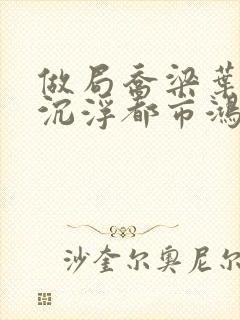 做局乔梁葉
沉浮都市鸿
沙奎尔奥尼尔